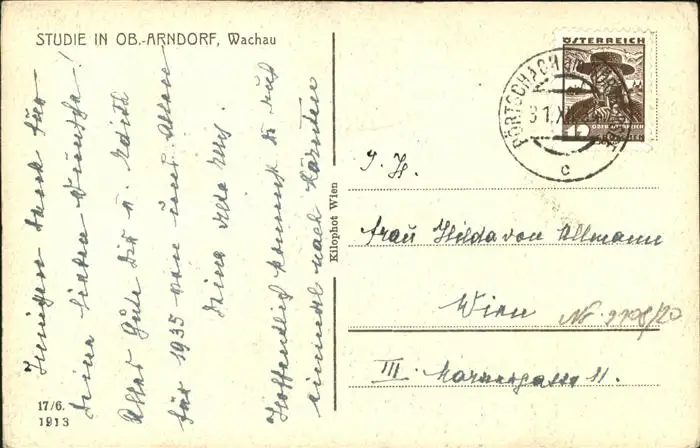 STUDIE IN OB.-ARNDORF, Wachau
Innigen Dank für
deine lieben Wünsche!
Alles Gute Dir u. Edith
für 1935 von uns allen
deine
Hoffentlich kommst Du auch
einmal nach Kärnten
17/6.
1913
Kilophot Wien
ÖSTERREICH
12
PÖRTSCHACH AM
31.XII.34
c
I. H.
Frau Hilda von Allmann
Wien
Nr
III. Marxergasse 11.